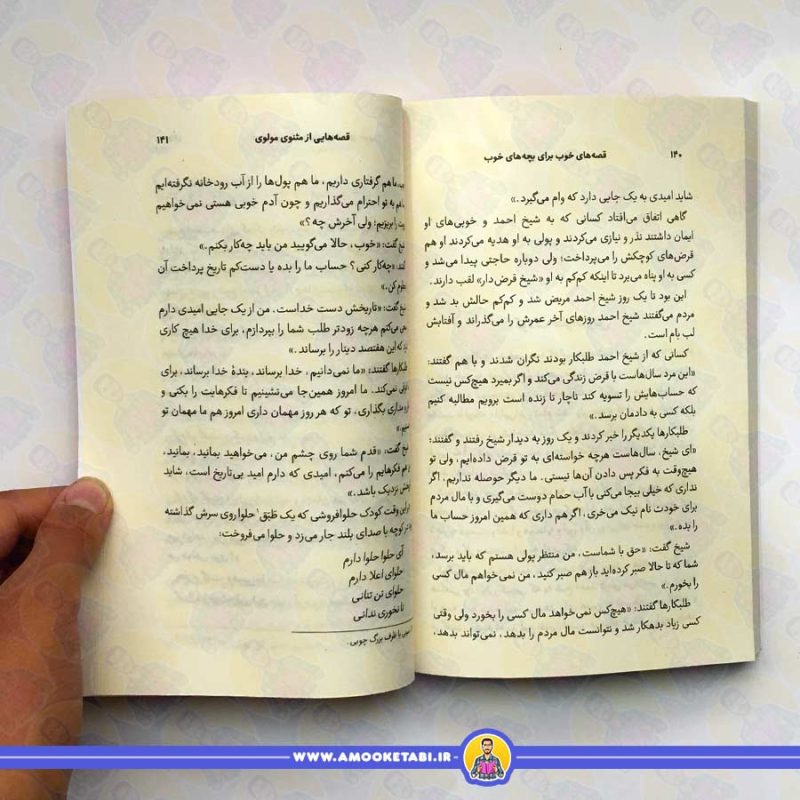 ۱۴۰ قصه‌های خوب برای بچه‌های خوب
شاید امیدی به یک جایی دارد که وام می‌گیرد.»
گاهی اتفاق می‌افتاد کسانی که به شیخ احمد و خوبی‌های او
ایمان داشتند نذر و نیازی می‌کردند و پولی به او هدیه می‌کردند او هم
قرض‌های کوچکش را می‌پرداخت؛ ولی دوباره حاجتی پیدا می‌شد و
کسی به او پناه می‌برد تا اینکه کم‌کم به او «شیخ قرض‌دار» لقب دارند.
این بود تا یک روز شیخ احمد مریض شد و کم‌کم حالش بد شد و
مردم می‌گفتند شیخ احمد روزهای آخر عمرش را می‌گذراند و آفتابش
لب بام است.
کسانی که از شیخ احمد طلبکار بودند نگران شدند و با هم گفتند:
«این مرد سال‌هاست با قرض زندگی می‌کند و اگر بمیرد هیچ‌کس نیست
که حساب‌هایش را تسویه کند ناچار تا زنده است برویم مطالبه کنیم
بلکه کسی به دادمان برسد.»
طلبکارها یکدیگر را خبر کردند و یک روز به دیدار شیخ رفتند و گفتند:
«ای شیخ، سال‌هاست هرچه خواسته‌ای به تو قرض داده‌ایم، ولی تو
هیچ‌وقت به فکر پس دادن آن‌ها نیستی. ما دیگر حوصله نداریم، اگر
نداری که خیلی بیجا می‌کنی با آب حمام دوست می‌گیری و با مال مردم
برای خودت نام نیک می‌خری، اگر هم داری که همین امروز حساب ما
را بده.»
شیخ گفت: «حق با شماست، من منتظر پولی هستم که باید برسد،
شما که تا حالا صبر کرده‌اید باز هم صبر کنید، من نمی‌خواهم مال کسی
را بخورم.»
طلبکارها گفتند: «هیچ‌کس نمی‌خواهد مال کسی را بخورد ولی وقتی
کسی زیاد بدهکار شد و نتوانست مال مردم را بدهد، نمی‌تواند بدهد،
قصه‌هایی از مثنوی مولوی ۱۴۱
ما هم گرفتاری داریم، ما هم پول‌ها را از آب رودخانه نگرفته‌ایم
هم به تو احترام می‌گذاریم و چون آدم خوبی هستی نمی‌خواهیم
را بریزیم؛ ولی آخرش چه؟»
گفت: «خوب، حالا می‌گویید من باید چه‌کار بکنم.»
«چه‌کار کنی؟ حساب ما را بده یا دست‌کم تاریخ پرداخت آن
کن.»
گفت: «تاریخش دست خداست، من از یک جایی امیدی دارم
می‌کنم هرچه زودتر طلب شما را بپردازم، برای خدا هیچ کاری
که این هفتصد دینار را برساند.»
طلبکارها گفتند: «ما نمی‌دانیم، خدا برساند، بندهٔ خدا برساند، برای
نمی‌کند. ما امروز همین‌جا می‌نشینیم تا فکرهایت را بکنی و
بگذاری، تو که هر روز مهمان داری امروز هم ما مهمان تو
گفت: «قدم شما روی چشم من، می‌خواهید بمانید، بمانید،
هم فکرهایم را می‌کنم، امیدی که دارم امید بی‌تاریخ است، شاید
نزدیک باشد.»
این وقت کودک حلوافروشی که یک طَبَق۱ حلوا روی سرش گذاشته
کوچه با صدای بلند جار می‌زد و حلوا می‌فروخت:
آی حلوا حلوا دارم
حلوای اعلا دارم
حلوای تن تنانی
تا نخوری ندانی
یا ظرف بزرگ چوبی.
WWW.AMOOKETABI.IR